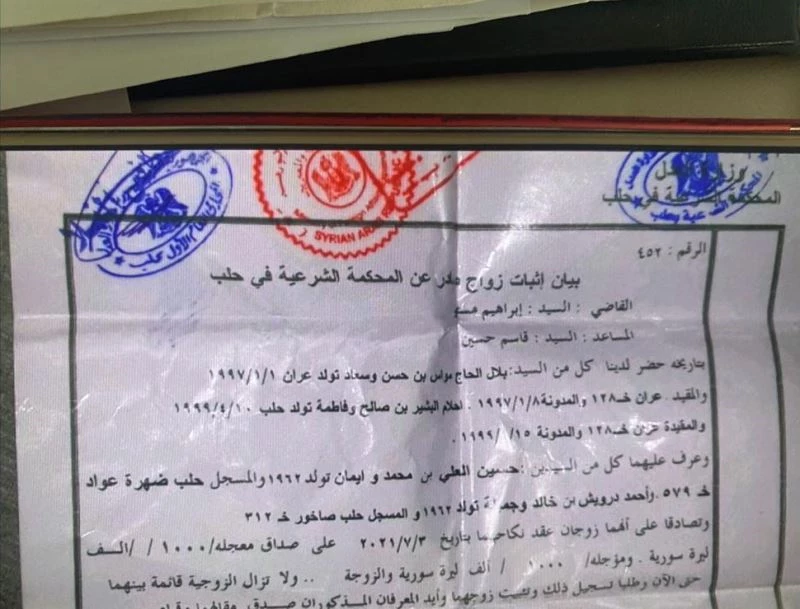 SYRIAN ARAB
وزارة العدل
المحكمة الشرعية في حلب
الرقم : ٤٥٢
بيان إثبات زواج صادر عن المحكمة الشرعية في حلب
القاضي : السيد : إبراهيم
المساعد : السيد : قاسم حسين
بتاريخه حضر لدينا كل من السيد: بلال الحاج مواس بن حسن وسعاد تولد عران ١٩٩٧/١/١
والمقيد . عران خـ١٢٨ والمدونة ١٩٩٧/١/٨ . احلام البشير بن صالح وفاطمة تولد حلب ١٩٩٩/٤/١٠
والمقيدة عران خـ١٢٨ والمدونة ١٥/
وعرف عليهما كل من السيدين : حسين العلي بن محمد و ايمان تولد ١٩٦٢ والمسجل حلب ضهرة عواد
خـ ٥٧٩ .وأحمد درويش بن خالد تولد ١٩٦٢ و المسجل حلب صاخور خـ ٣١٢
وتصادقا على أنهما زوجان عقد نكاحهما بتاريخ ٢٠٢١/٧/٣ على صداق معجله/١٠٠٠ / /الــف
ليرة سورية . ومؤجله/ ١٠٠٠ / ألف ليرة سورية والزوجة .. ولا تزال الزوجية قائمة بينهما
حتى الآن وطلبا تسجيل ذلك وتثبيت زوجهما وأيد المعرفان المذكوران صدق